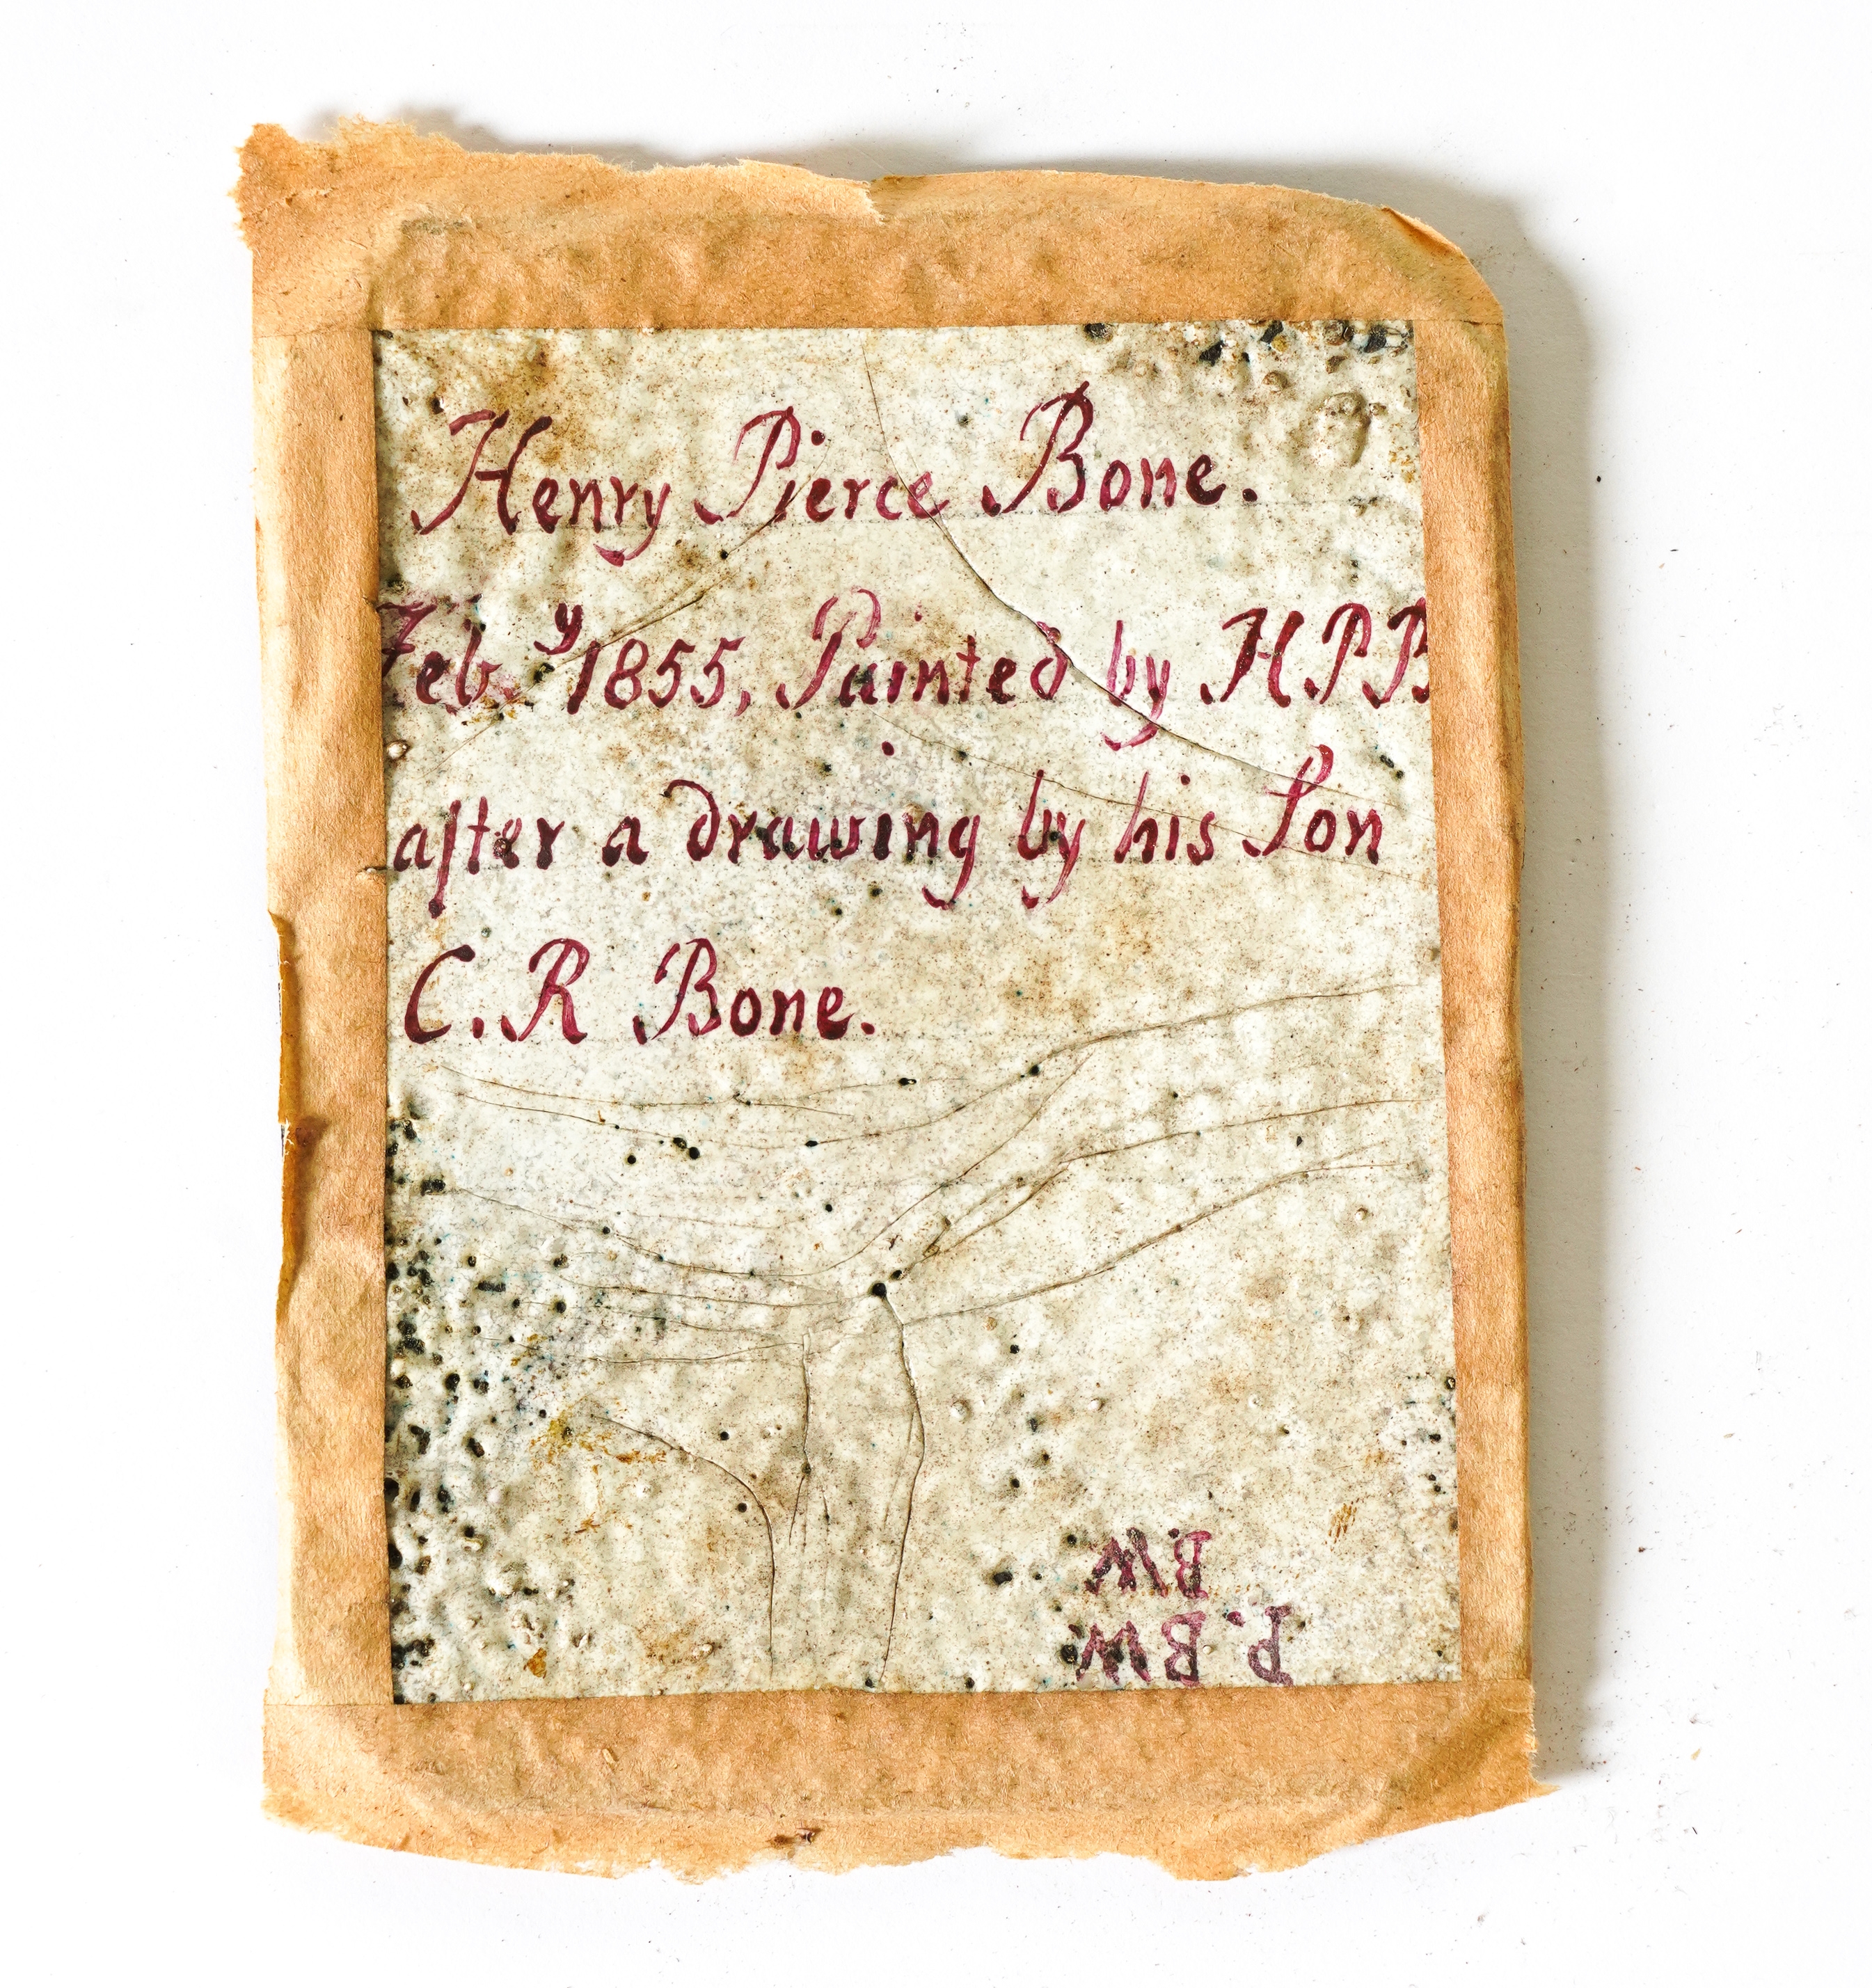 Henry Pierce Bone.
Feb.y 1855, Painted by HPB
after a drawing by his Son
C.R Bone.
BW
P.BW